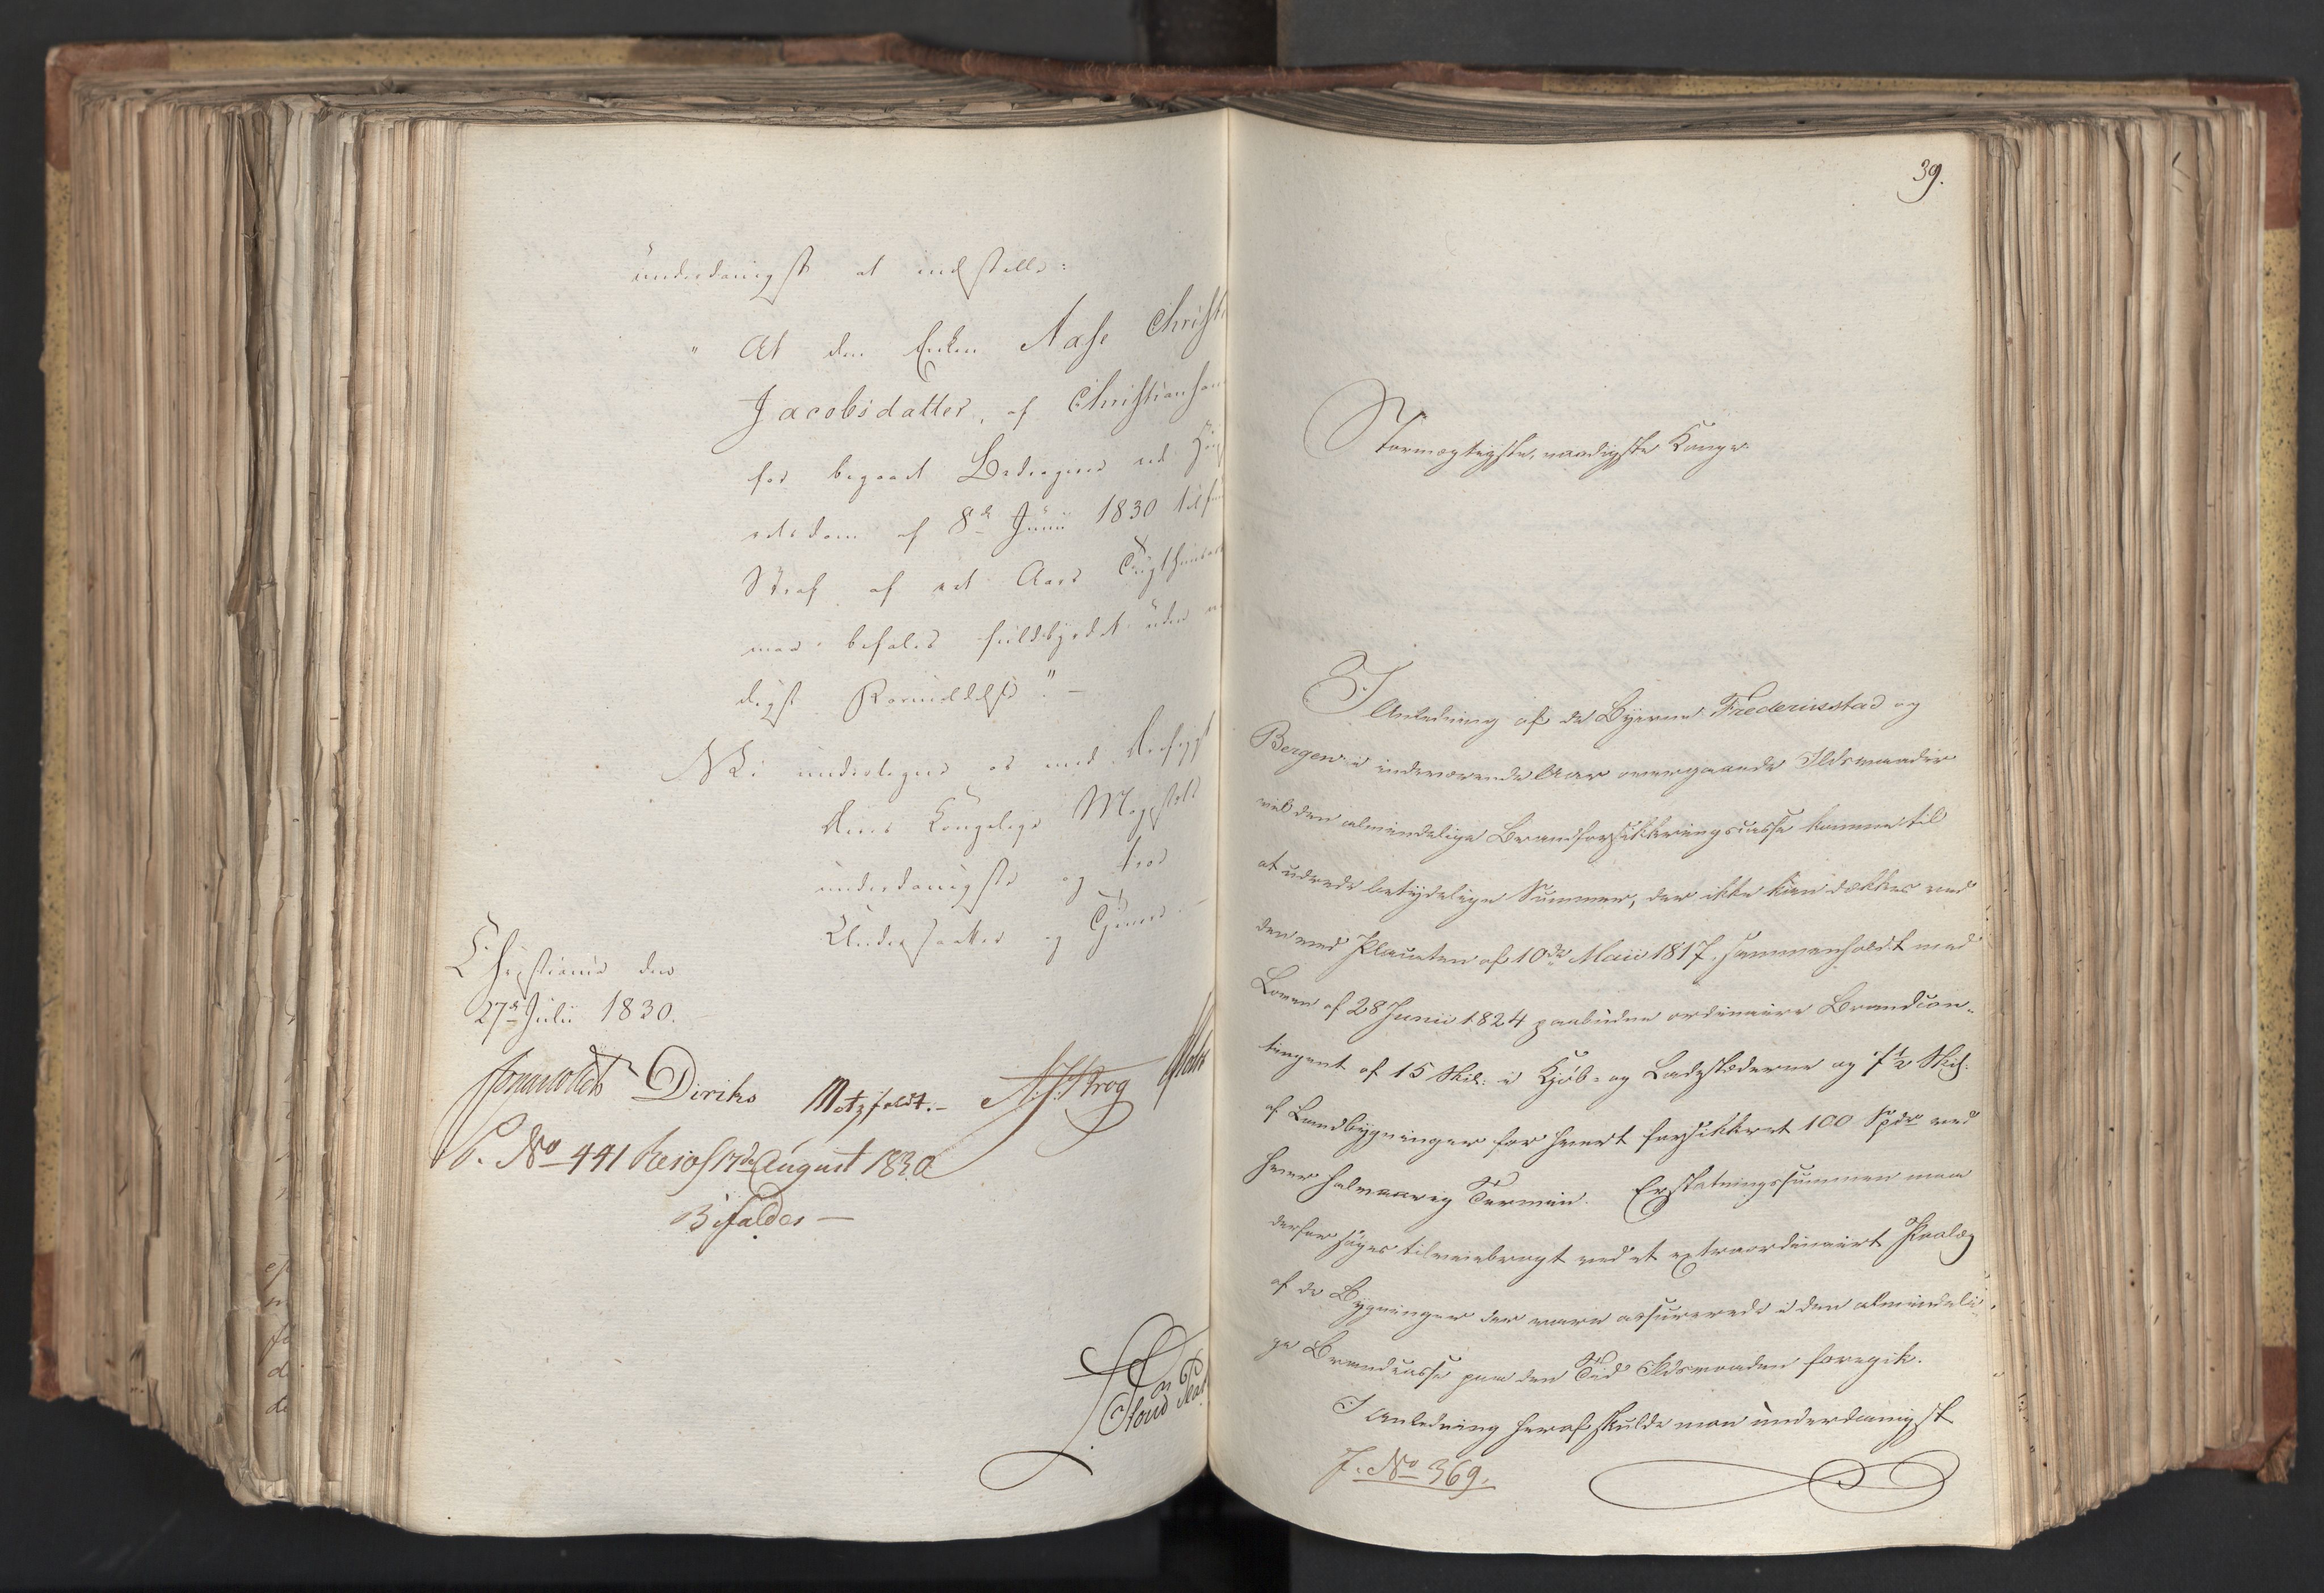 underdanigst at indstille:
" At den Enken Aase Christi
Jacobsdatter, af Christiansan
for begaaet Bedragerie ved Høie
retsdom af 8de Junii 1830 tilfun
Straf af et Aars Tugthuusar
maa befales fuldbyrdet uden
digst Formildelse." –
Vi undertegne os med
Deres Kongelige Majestæts
underdanigste og troe
Undersaatter og Tjenere.
Christiania den
27de Julii 1830.
Diriks Motzfeldt. – Krog
P. No 441 Resol 17de August 1830
Bifaldes –
39.
Stormægtigste, naadigste Konge
I Anledning af de Byerne Frederiksstad og
Bergen i indeværende Aar overgaaende Ildsvaader
vil den almindelige Brandforsikkringscasse komme til
at udrede betydelige Summer, der ikke kan dækkes ved
den ved Placaten af 10de Maii 1817, sammenholdt med
Loven af 28 Junii 1824 paabudne ordinaire Brandcon-
tingent af 15 Skil: i Kjøb- og Ladestæderne og 7½ Skil:
af Landbygninger for hvert forsikkret 100 Spdr ved
hver halvaarig Termin. Erstatningssummen maa
derfor søges tilveiebragt ved et extraordinairt Paalæg
af de Bygninger der vare assurerede i den almindeli-
ge Brandcasse paa den Tid Ildsvaaden foregik.
I Anledning heraf skulde man underdanigst
J. No 369.